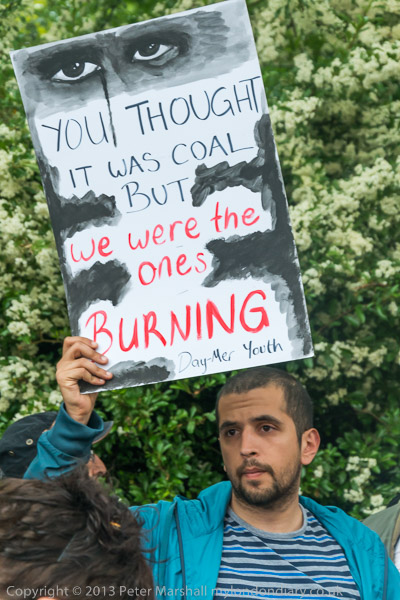 YOU THOUGHT
IT WAS COAL
BUT
we were the
ones
BURNING
Day-Mer Youth
Copyright © 2013 Peter Marshall mylondondiary.co.uk